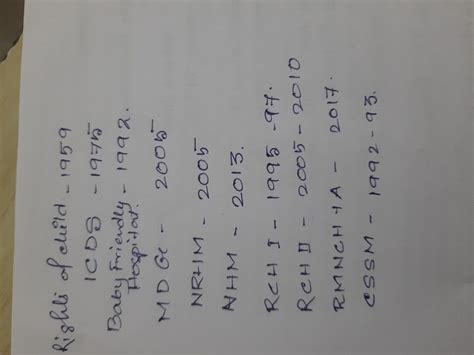 Rights of child - 1959
ICDS - 1975
Baby Friendly - 1992.
Hospital.
MDGs - 2005
NRHM - 2005
NHM - 2013.
RCH I - 1995-97.
RCH II - 2005-2010
RMNCH+A - 2017.
CSSM - 1992-93.